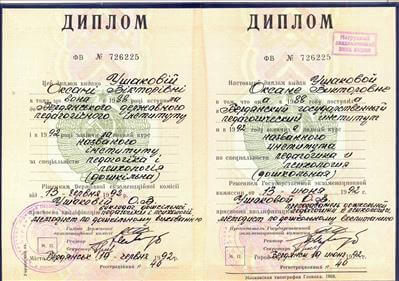 ДИПЛОМ
ФВ № 726225
Цей диплом видано Ушаковій
Оксані Вікторівні
в тому, що вона в 1988 році вступила
до Бердянського державного
педагогічного інституту
і в 1992
названого
інституту
за спеціальністю педагогіка і
психологія
(дошкільна)
Рішенням Державної екзаменаційної комісії
від 15 червня 1992 р.
Ушаковій О.В.
присвоєна кваліфікація викладач дошкільної
педагогіки і психології,
методист по дошкільному вихованню
Голова Державної
екзаменаційної комісії
Ректор
Секретар
М. П.
Бердянськ 19 червня 1992 р.
Реєстраційний № 46
ДИПЛОМ
ФВ № 726225
Настоящий диплом выдан Ушаковой
Оксане Викторовне
в том, что она в 1988 году поступила
в Бердянский государственный
педагогический институт
и в 1992 году
названного
института
по специальности педагогика и
психология
(дошкольная)
Решением Государственной экзаменационной комиссии
от 15 июня 1992 г.
Ушаковой О.В.
присвоена квалификация преподаватель дошкольной
педагогики и психологии,
методист по дошкольному воспитанию
Ректор
Секретарь
М. П.
Бердянск 19 июня 1992 г.
Регистрационный № 46
Московская типография Гознака. 1988.